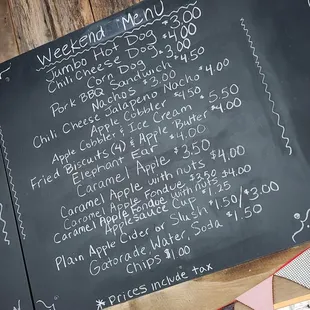 Weekend Menu
Jumbo Hot Dog $3.00
Chili Cheese Dog $4.00
Corn Dog $3.00
Pork BBQ Sandwich $4.50
Nachos $3.00
Chili Cheese Jalapeno Nacho $4.00
Apple Cobbler $4.50
Apple Cobbler & Ice Cream $5.50
Fried Biscuits (4) & Apple Butter $4.00
Elephant Ear $4.00
Caramel Apple $3.50
Caramel Apple with nuts $4.00
Caramel Apple Fondue $3.50
Caramel Apple Fondue with nuts $4.00
Applesauce Cup $1.25
Plain Apple Cider or Slush $1.50/$3.00
Gatorade, Water, Soda $1.50
Chips $1.00
*Prices include tax